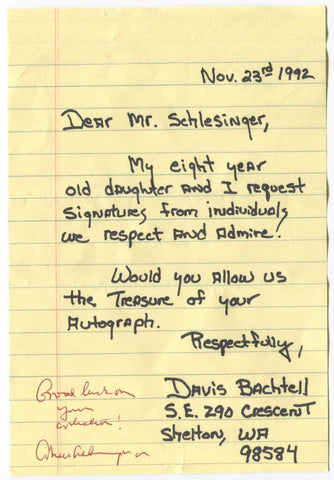 Nov. 23rd 1992
Dear Mr. Schlesinger,
My eight year
old daughter and I request
signatures from individuals
we respect and admire!
Would you allow us
the treasure of your
autograph.
Respectfully,
Davis Bachtell
S.E. 290 Crescent
Shelton, WA
98584
Good luck on
your
collection!